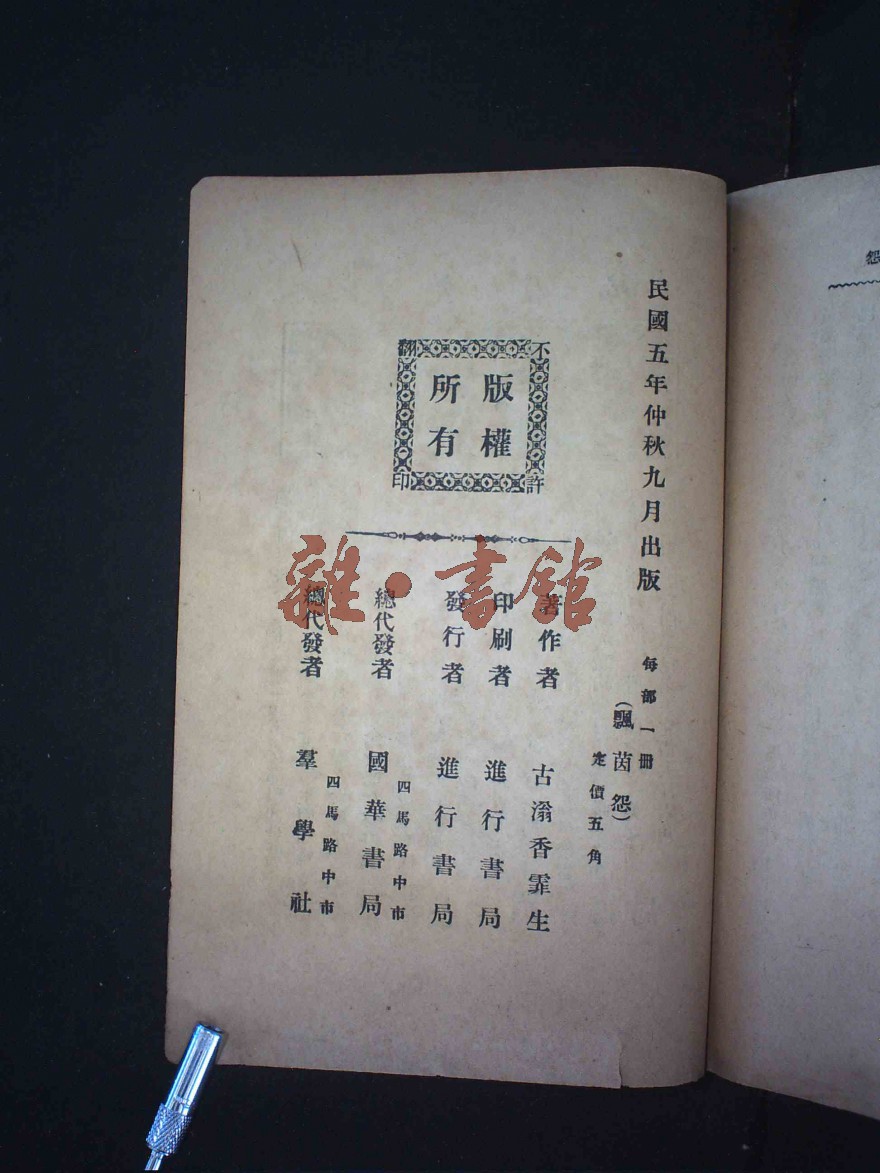 民國五年仲秋九月出版
每部一冊
(飄茵怨)
定價五角
不許翻印
版權
所有
著作者 古滃香霏生
印刷者 進行書局
發行者 進行書局
四馬路中市
總代發者 國華書局
四馬路中市
總代發者 羣學社
雜·書館
怨